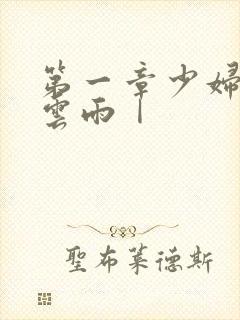 第一章少婦
雲雨｜
聖布萊德斯